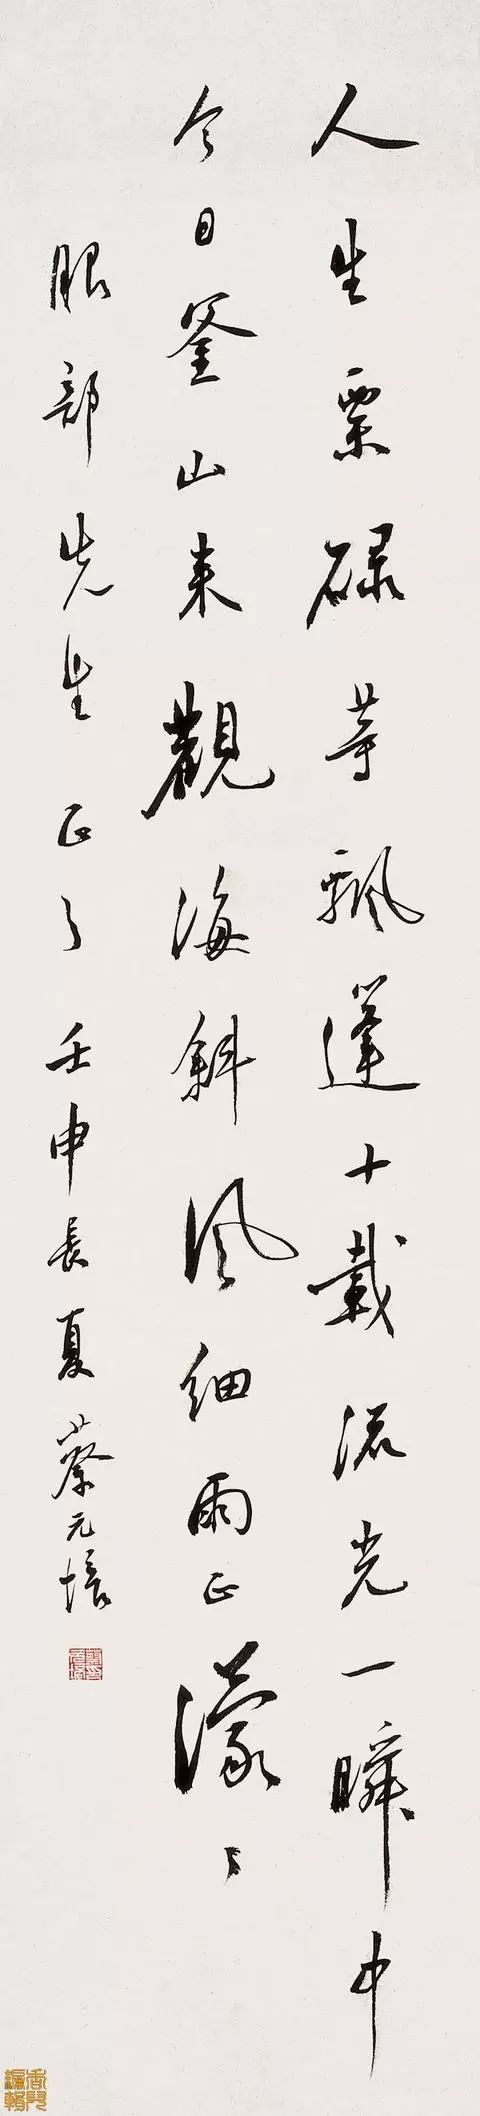 人生栗碌等飄蓬十載流光一瞬中
今日釜山来觀海斜风细雨正濛々
服部先生正之壬申長夏蔡元培